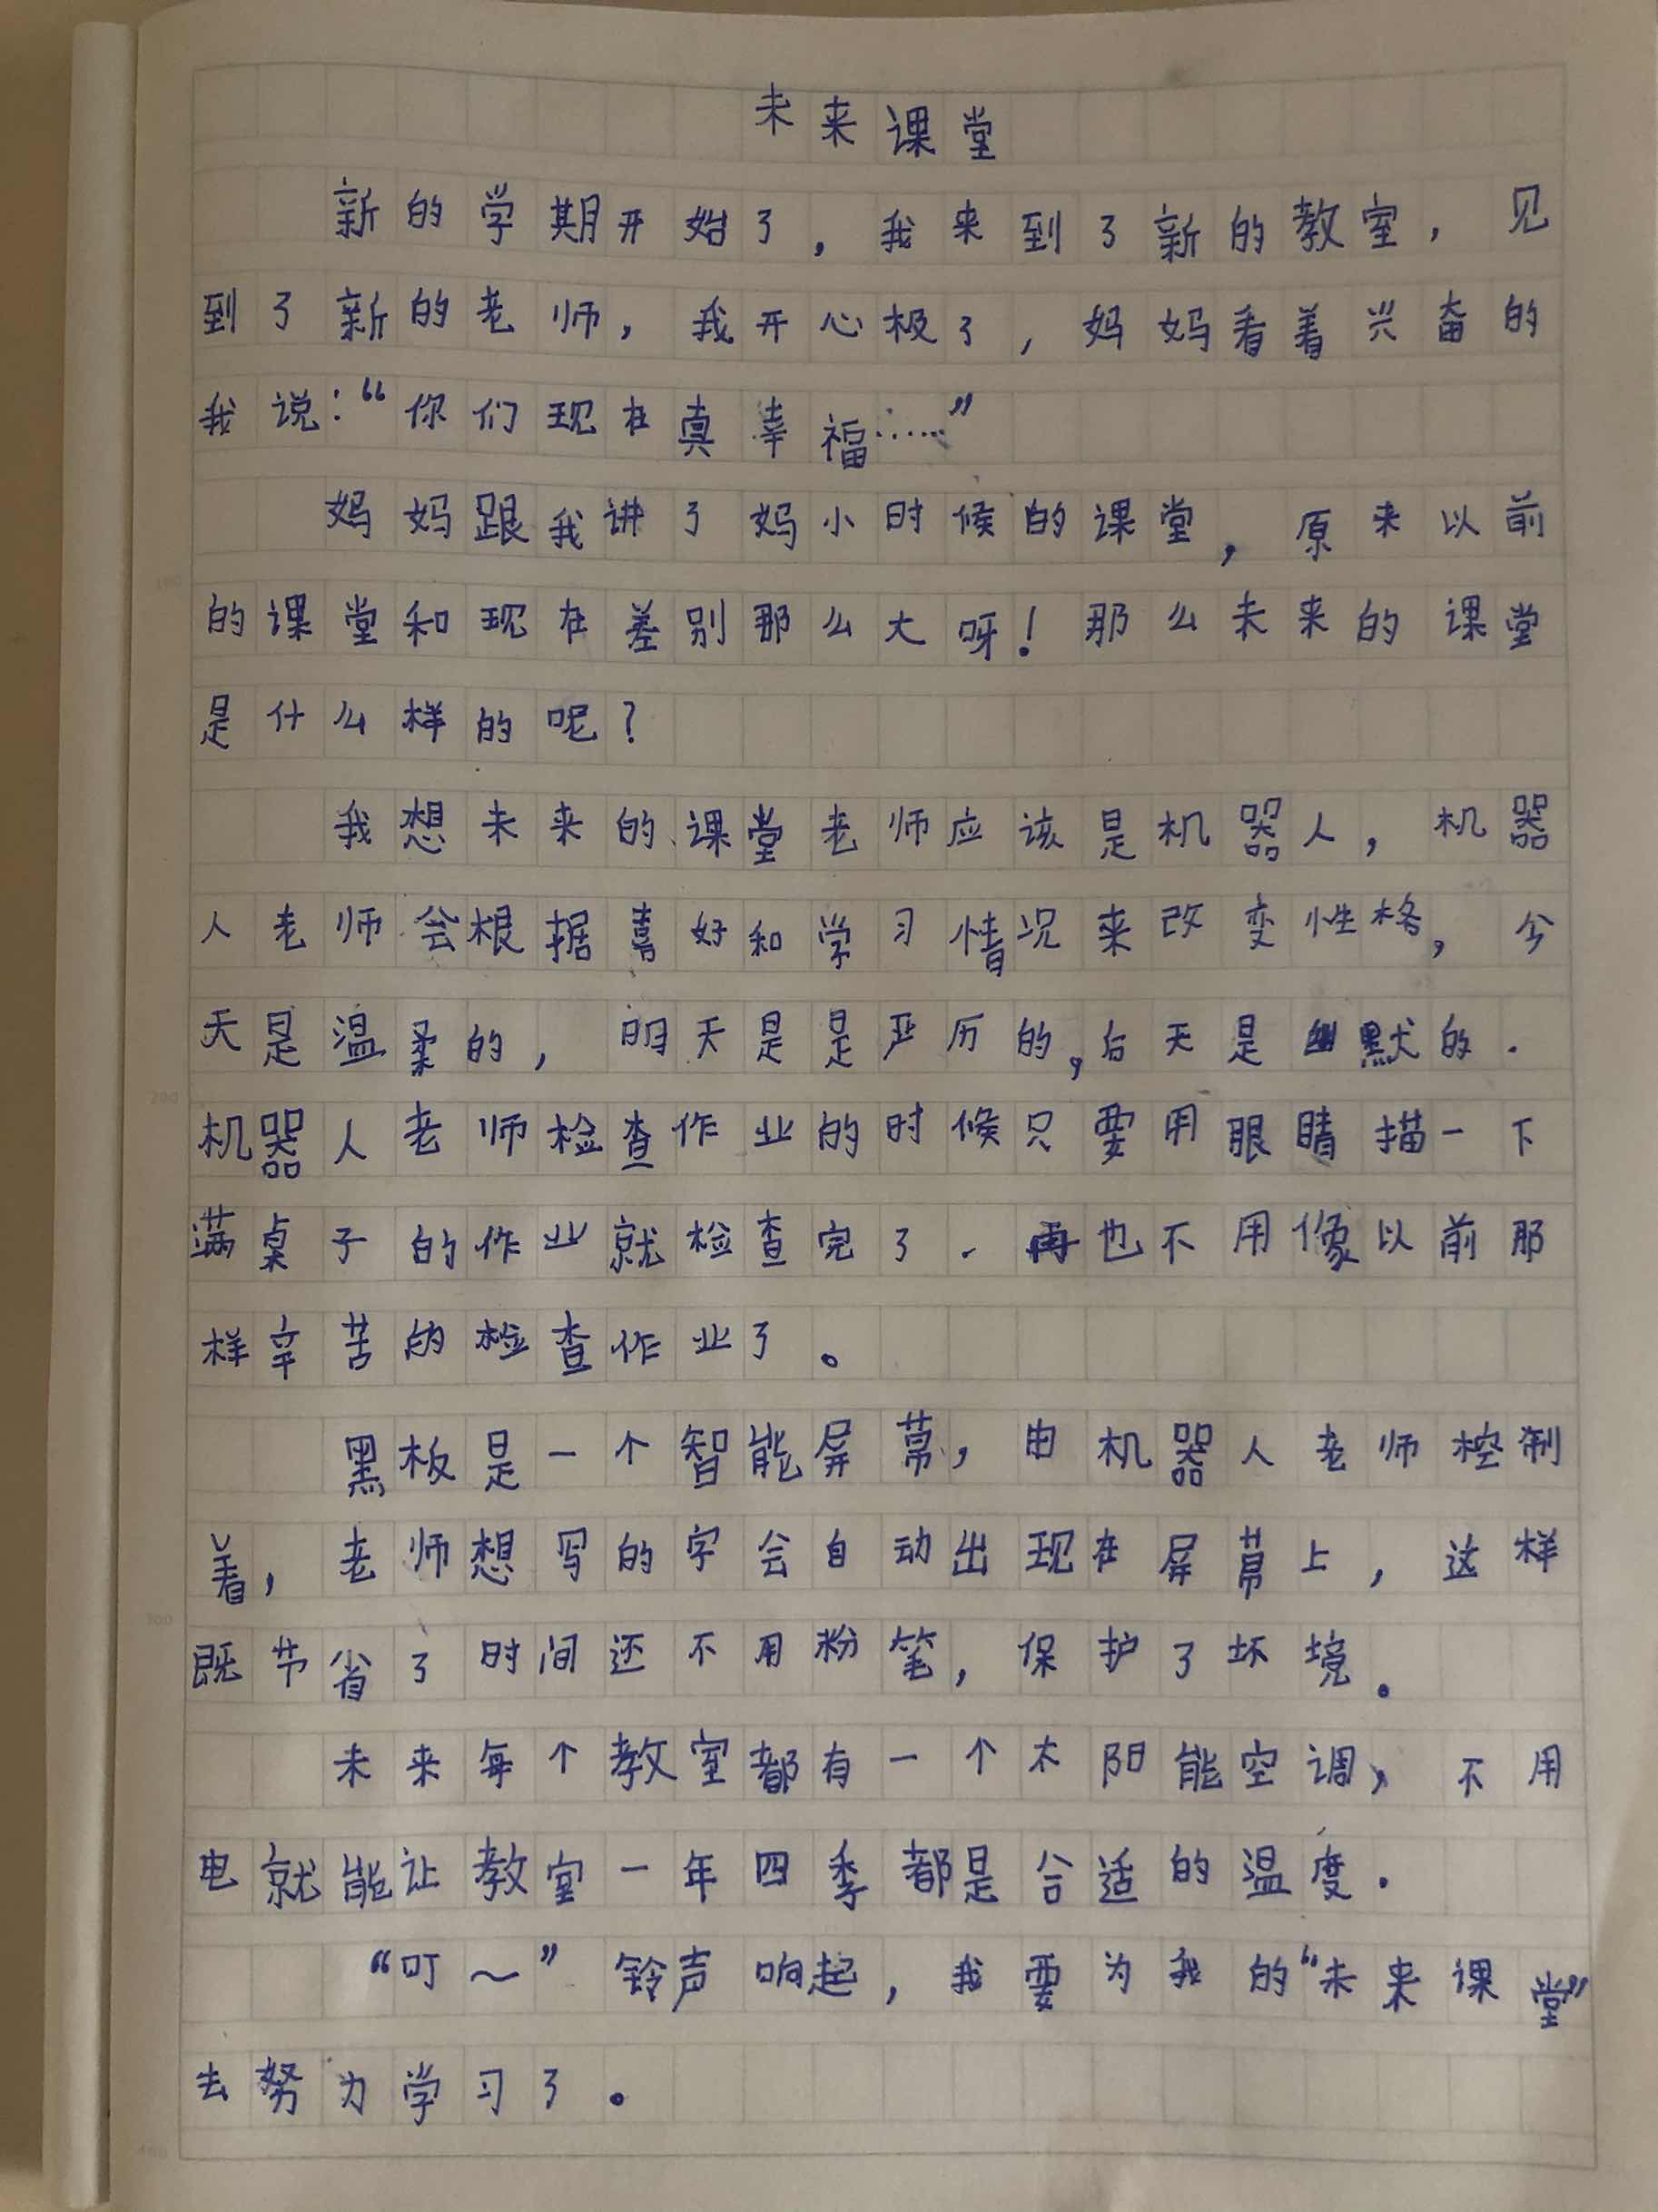 未来课堂
新的学期开始了，我来到了新的教室，见
到了新的老师，我开心极了，妈妈看着兴奋的
我说：“你们现在真幸福……”
妈妈跟我讲了妈小时候的课堂，原来以前
的课堂和现在差别那么大呀！那么未来的课堂
是什么样的呢？
我想未来的课堂老师应该是机器人，机器
人老师会根据喜好和学习情况来改变性格，今
天是温柔的，明天是是严历的，后天是幽默的.
机器人老师检查作业的时候只要用眼睛描一下
满桌子的作业就检查完了.再也不用像以前那
样辛苦的检查作业了。
黑板是一个智能屏幕，由机器人老师控制
着，老师想写的字会自动出现在屏幕上，这样
既节省了时间还不用粉笔，保护了坏境。
未来每个教室都有一个太阳能空调，不用
电就能让教室一年四季都是合适的温度.
“叮～”铃声响起，我要为我的“未来课堂”
去努力学习了。